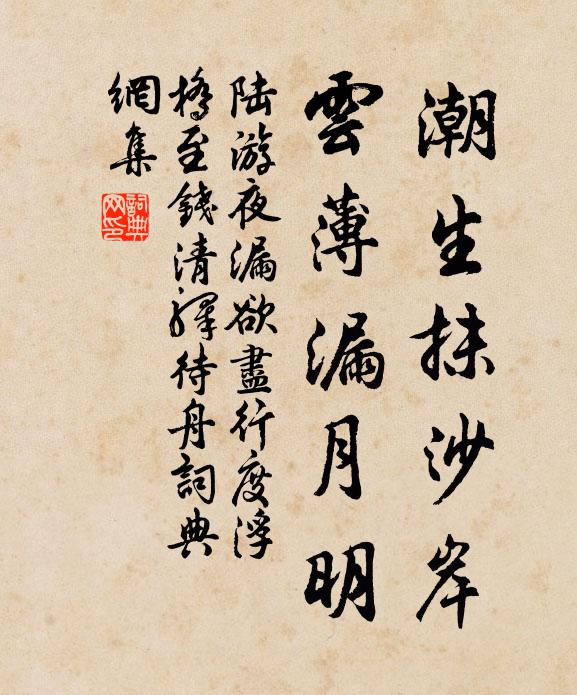 潮生抹沙岸
雲薄漏月明
陆游夜漏欲盡行度浮
橋至錢清驛待舟詞典
網集
詞典
网印